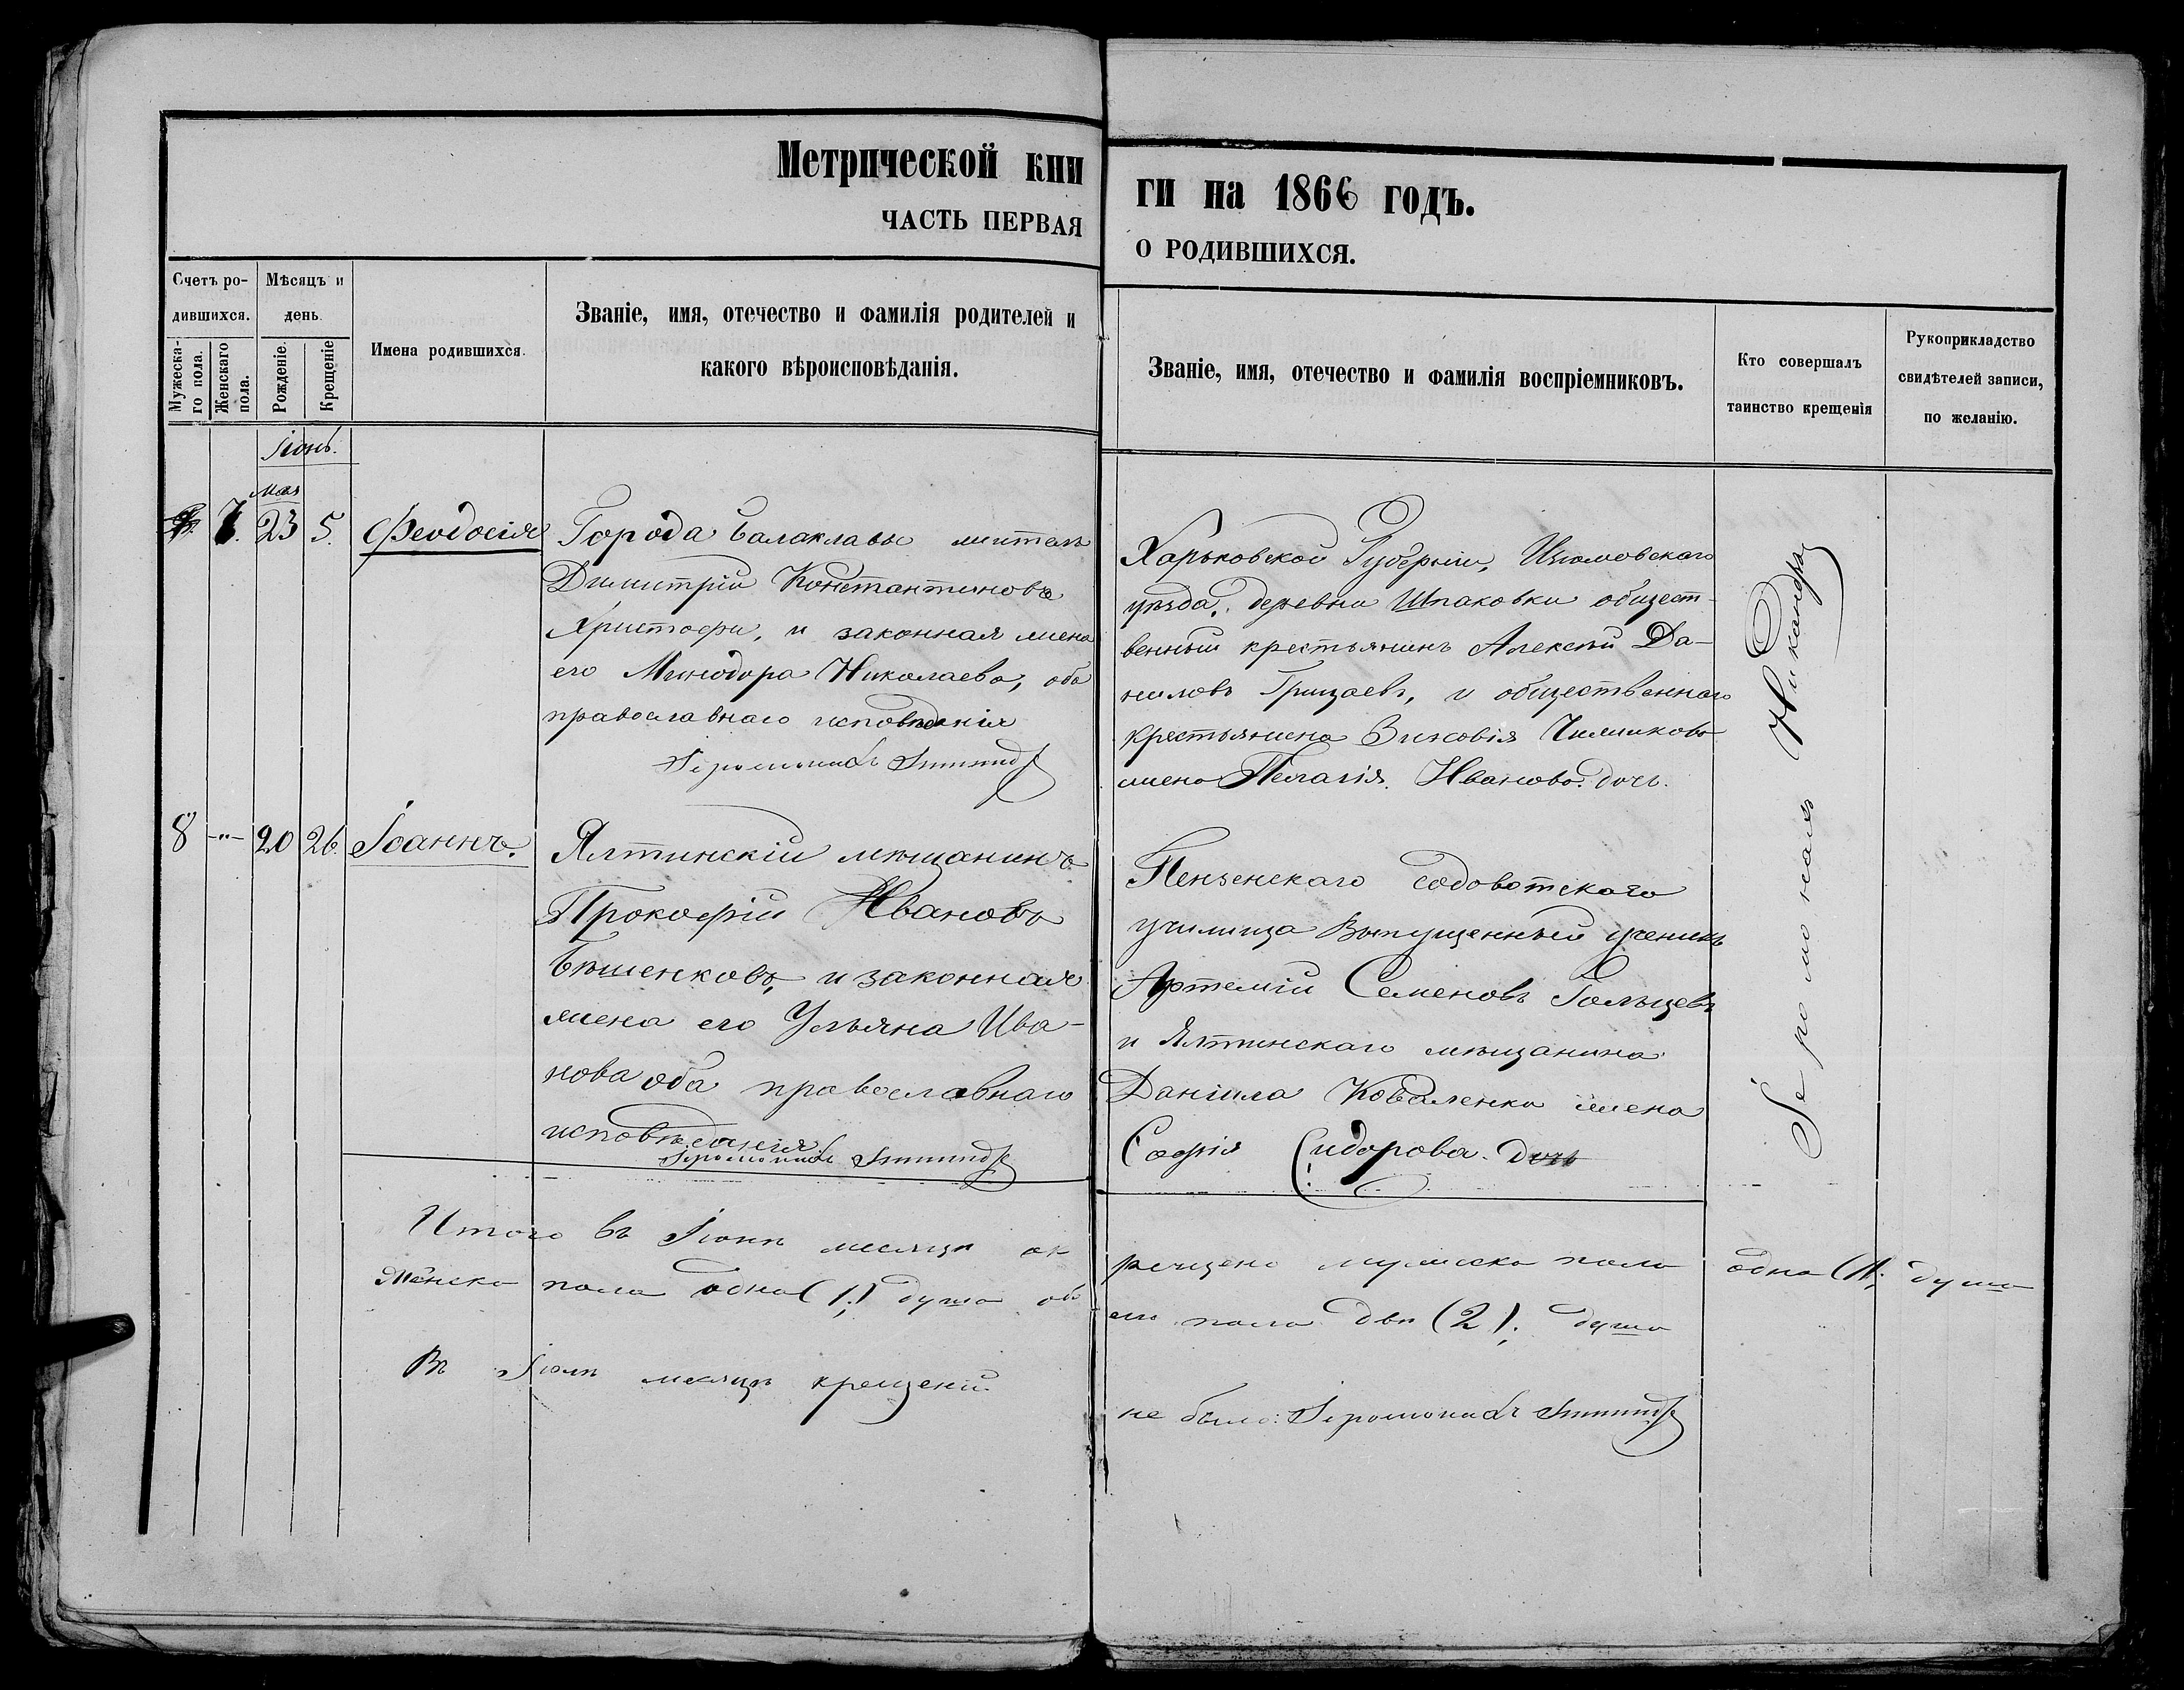 Метрической кни
ги на 1866 годъ.
ЧАСТЬ ПЕРВАЯ
О РОДИВШИХСЯ.
Счетъ ро-
дившихся.
Мужеска-
го пола.
Женскаго
пола.
Мѣсяцъ и
день.
Рожденіе.
Крещеніе
Имена родившихся.
Званіе, имя, отечество и фамилія родителей и
какого вѣроисповѣданія.
Званіе, имя, отечество и фамилія воспріемниковъ.
Кто совершалъ
таинство крещенія
Рукоприкладство
свидѣтелей записи,
по желанію.
Іюнь.
Мая
7. 23 5. Феодосія
Города Балаклавы житель
Димитрій Константиновъ
Христофи, и законная жена
его Минодора Николаева, оба
православнаго исповѣданія
Іеромонахъ
Харьковской Губерніи, Изюмовскаго
уѣзда, деревни Шпаковки общест-
венный крестьянинъ Алексѣй Да-
ниловъ Грицаевъ, и общественнаго
крестьянина Зиновія
жена Пелагія Иванова дочь.
Іеромонахъ Никандръ
8 -"- 20 26. Іоаннъ.
Ялтинскій мѣщанинъ
Прокофій Ивановъ
Бѣшенковъ, и законная
жена его Ульяна Ива-
нова оба православнаго
исповѣданія.
Іеромонахъ
Пензенскаго садоводскаго
училища выпущенный ученикъ
Артемій Семеновъ Гольцевъ
и Ялтинскаго мѣщанина
Даніила Коваленка жена
Софія Сидорова. дочь
Итого въ Іюнѣ месяцѣ ок
рещено мужеска пола одна (1; душа
Женска пола одна (1;) душа обо
его пола двѣ (2); душа
Въ Іюлѣ месяцѣ крещеній
не было: Іеромонахъ